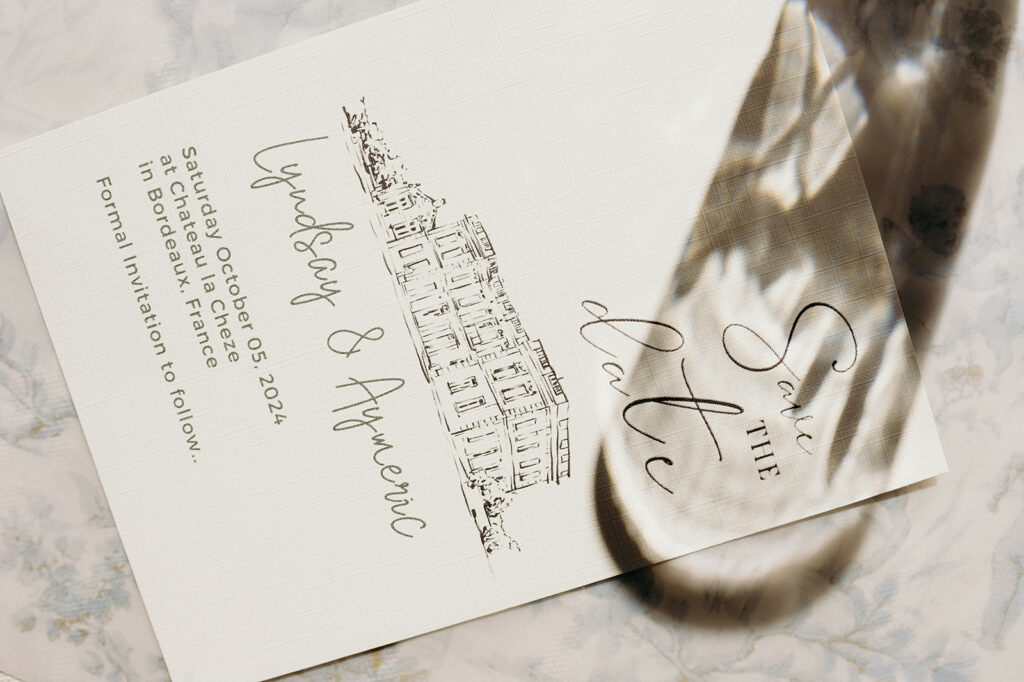 Save
THE
date
Lyndsay & Aymeric
Saturday October 05, 2024
at Chateau la Cheze
in Bordeaux, France
Formal Invitation to follow..